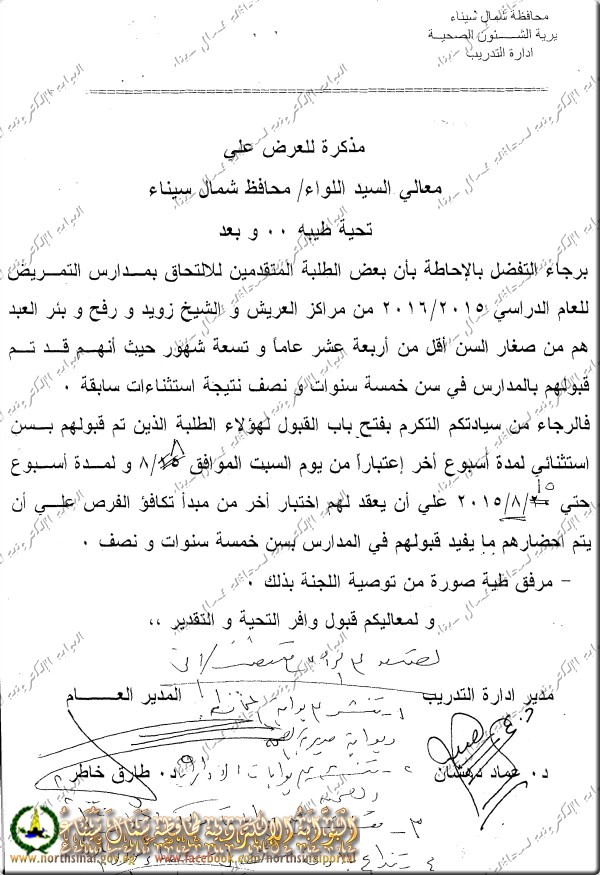 محافظة شمال سيناء
يرية الشئون الصحية
ادارة التدريب
مذكرة للعرض علي
معالي السيد اللواء/ محافظ شمال سيناء
تحية طيبه ٠٠ و بعد
برجاء التفضل بالإحاطة بأن بعض الطلبة المتقدمين للالتحاق بمدارس التمريض
للعام الدراسي ٢٠١٦/٢٠١٥ من مراكز العريش و الشيخ زويد و رفح و بئر العبد
هم من صغار السن أقل من أربعة عشر عاماً و تسعة شهور حيث أنهم قد تم
قبولهم بالمدارس في سن خمسة سنوات و نصف نتيجة استثناءات سابقة ٠
فالرجاء من سيادتكم التكرم بفتح باب القبول لهؤلاء الطلبة الذين تم قبولهم بسن
استثنائي لمدة أسبوع أخر إعتباراً من يوم السبت الموافق ٨ و لمدة أسبوع
حتي ٢٠١٥/٨/ علي أن يعقد لهم اختبار أخر من مبدأ تكافؤ الفرص علي أن
يتم احضارهم ما يفيد قبولهم في المدارس بسن خمسة سنوات و نصف ٠
- مرفق طية صورة من توصية اللجنة بذلك ٠
و لمعاليكم قبول وافر التحية و التقدير ،،
مدير ادارة التدريب
المدير العـــام
د. عماد دهشان
د. طارق خاطر
البوابة الإلكترونية لمحافظة شمال سيناء
www.northsinai.gov.eg www.facebook.com/northsinaiportal